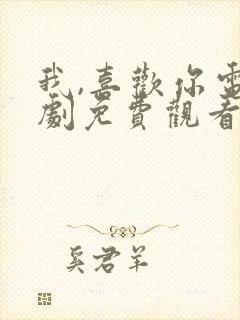 我,喜歡你電
劇免費觀看
奚君羊